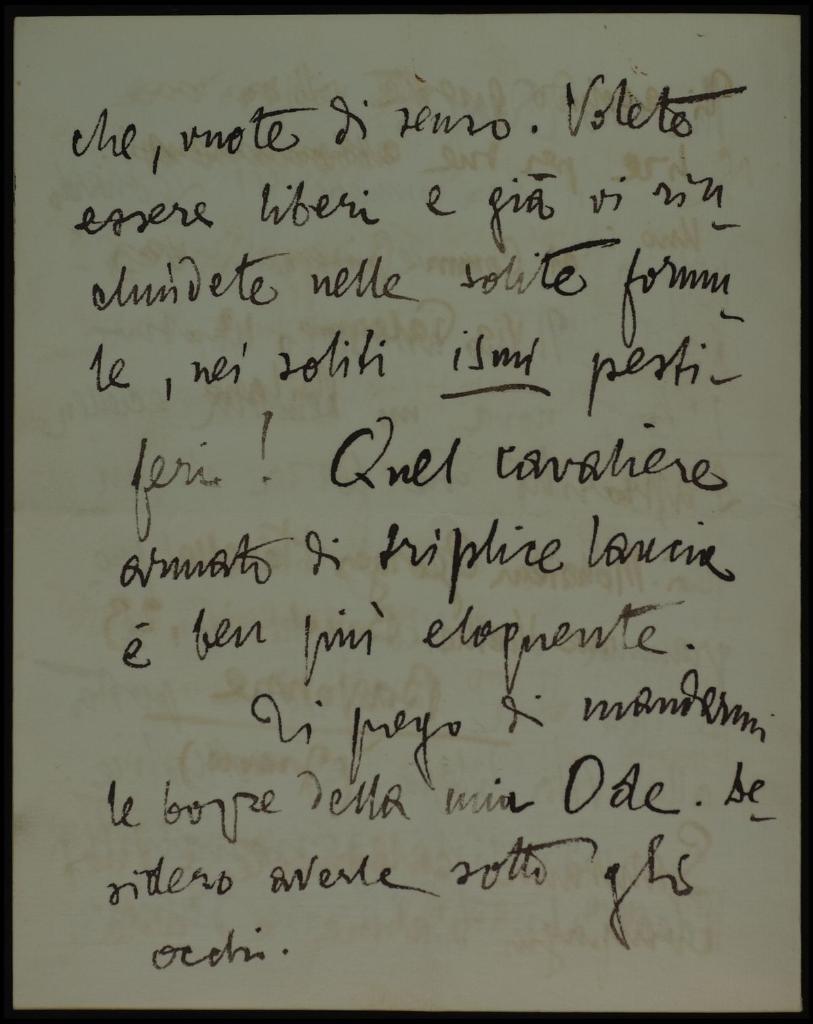 che, vuote di senso. Volete
essere liberi e già vi rin-
chiudete nelle solite formu-
le, nei soliti ismi pesti-
feri! Quel cavaliere
armato di triplice lancia
è ben più eloquente.
Ti prego di mandarmi
le bozze della mia Ode. De-
sidero averle sotto gli
occhi.